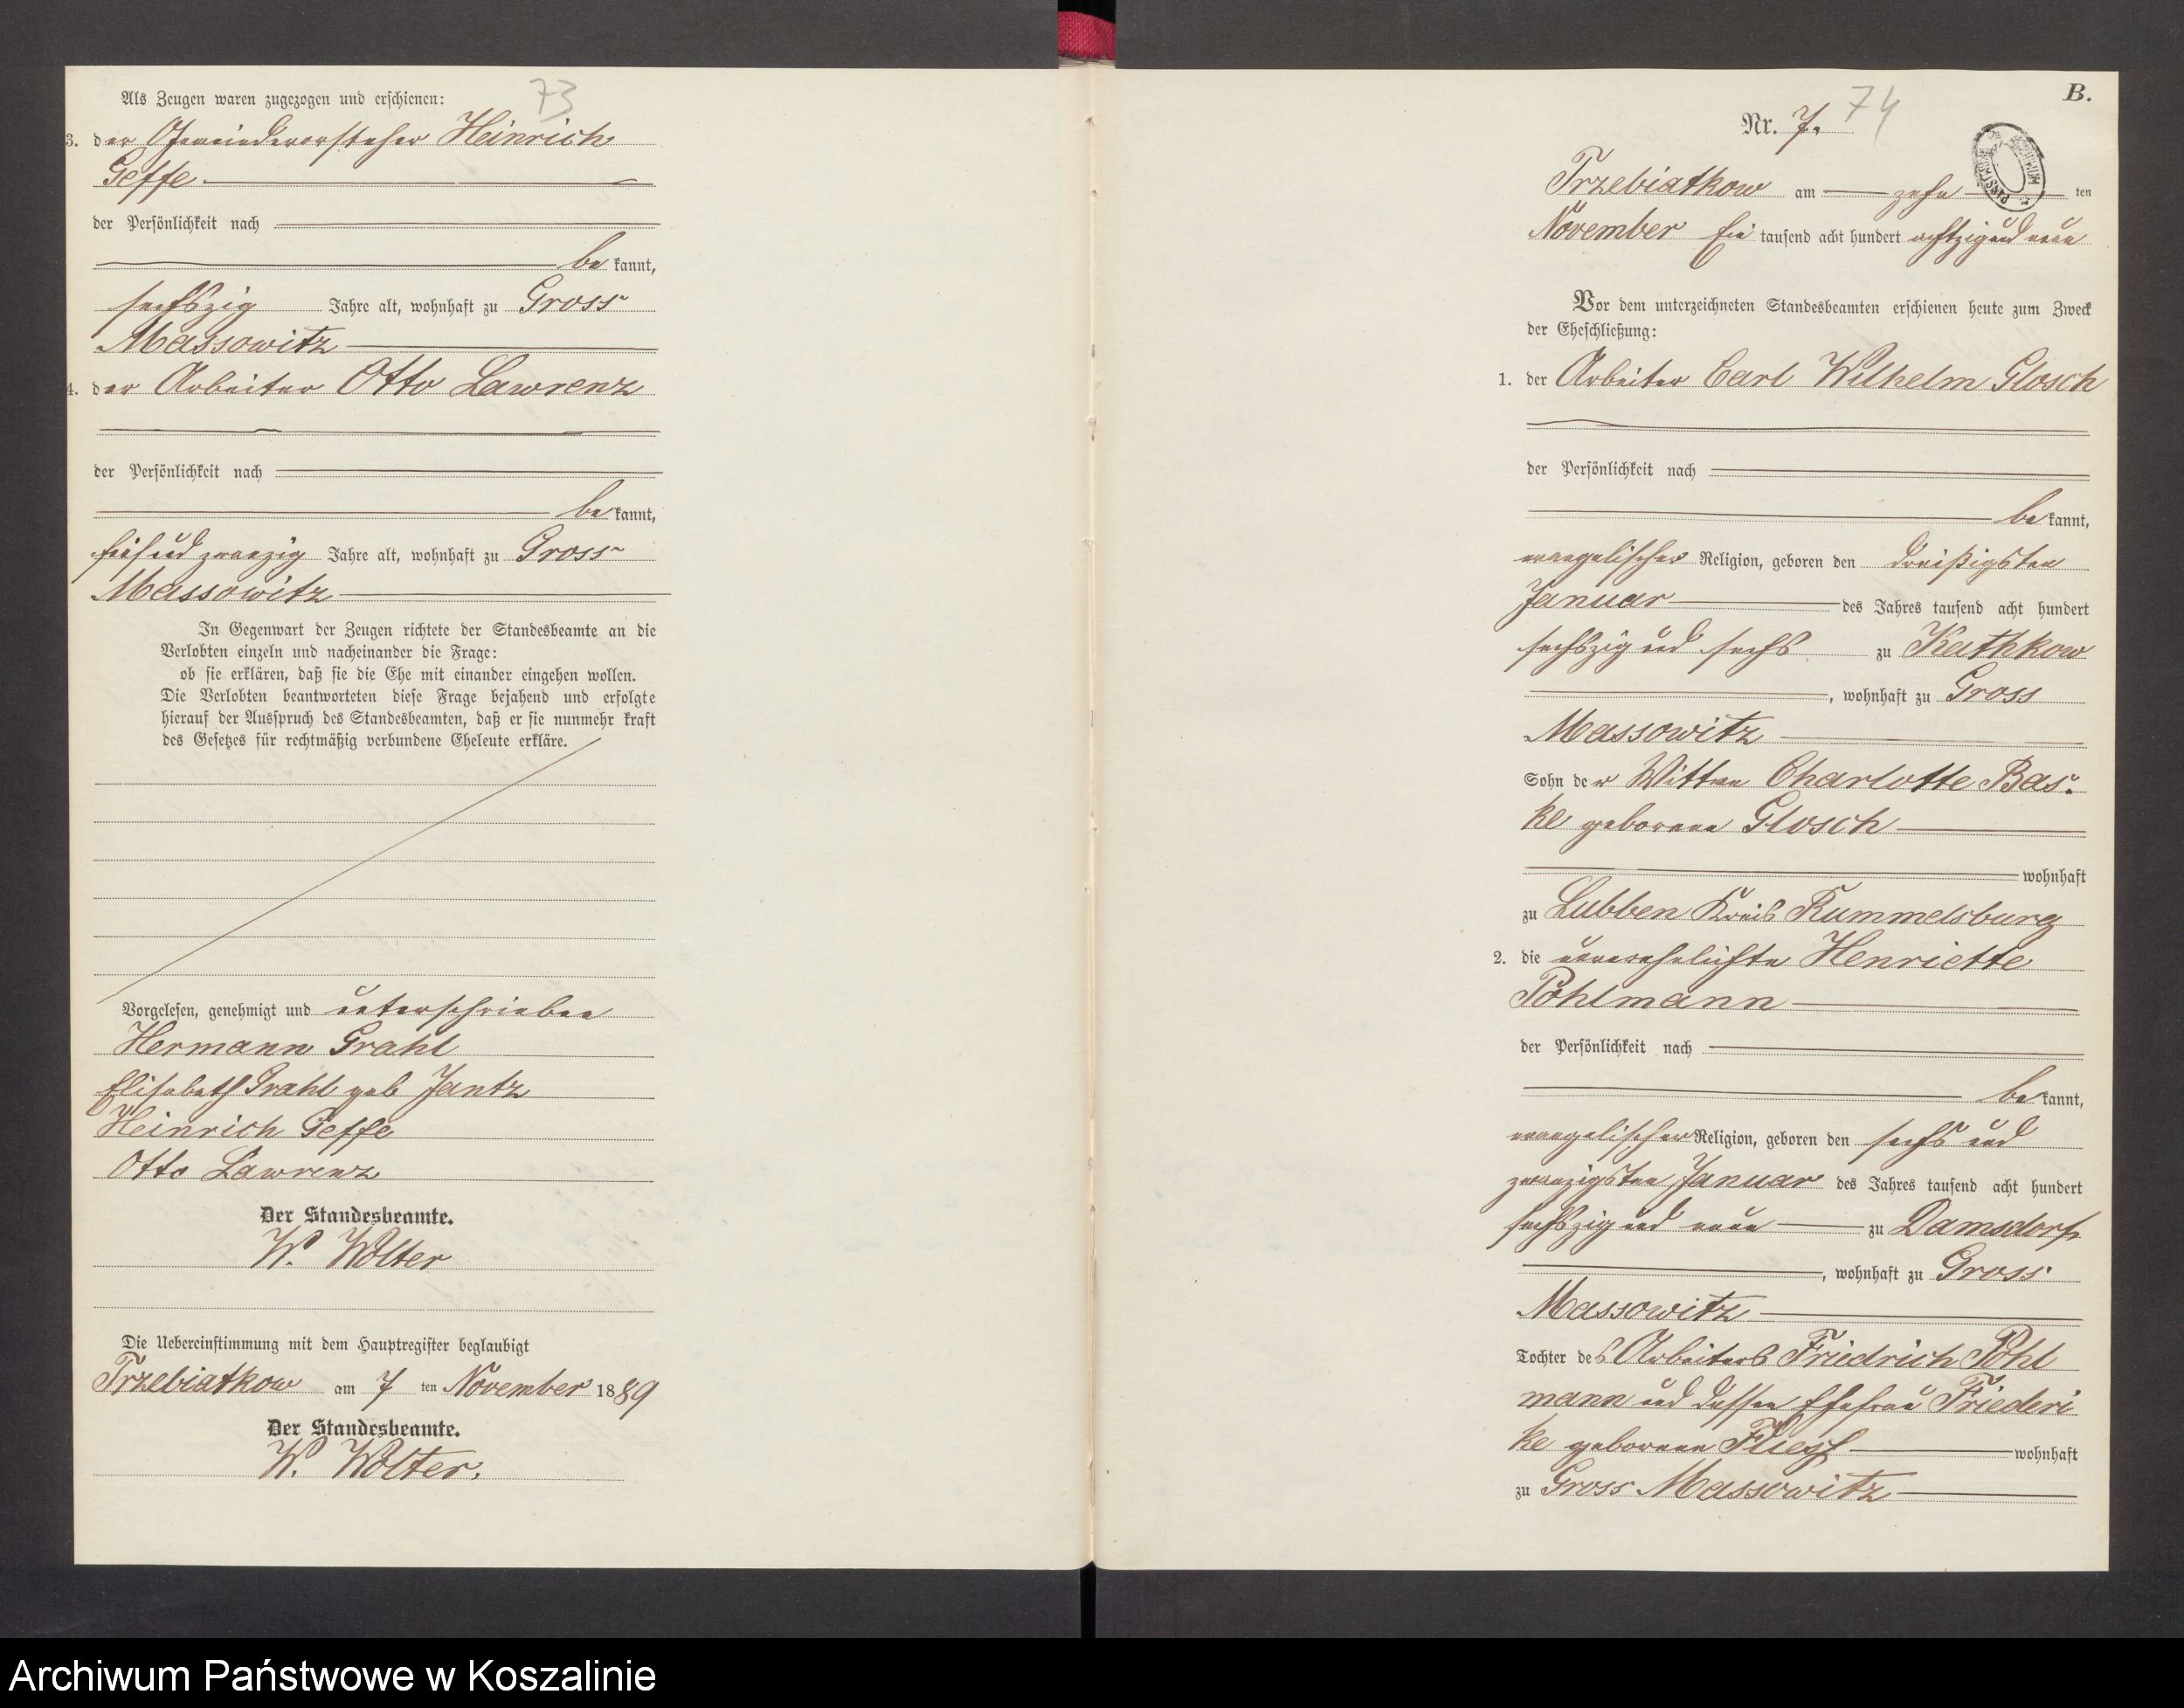 73
Als Zeugen waren zugezogen und erschienen:
3. der Gemeindevorsteher Heinrich
Geffe
der Persönlichkeit nach
be kannt,
sechszig Jahre alt, wohnhaft zu Gross
Massowitz
4. der Arbeiter Otto Lawrenz
der Persönlichkeit nach
be kannt,
fünfund zwanzig Jahre alt, wohnhaft zu Gross
Massowitz
In Gegenwart der Zeugen richtete der Standesbeamte an die
Verlobten einzeln und nacheinander die Frage:
ob sie erklären, daß sie die Ehe mit einander eingehen wollen.
Die Verlobten beantworteten diese Frage bejahend und erfolgte
hierauf der Ausspruch des Standesbeamten, daß er sie nunmehr kraft
des Gesetzes für rechtmäßig verbundene Eheleute erkläre.
Vorgelesen, genehmigt und unterschrieben
Hermann Grahl
Elisabeth Grahl geb Jantz
Heinrich Geffe
Otto Lawrenz
Der Standesbeamte.
W. Wolter
Die Uebereinstimmung mit dem Hauptregister beglaubigt
Trzebiatkow am 7 ten November 1889
Der Standesbeamte.
W. Wolter.
B.
Nr. 7. 74
Trzebiatkow am zehn ten
November Ein tausend acht hundert achtzigund neun
Vor dem unterzeichneten Standesbeamten erschienen heute zum Zweck
der Eheschließung:
1. der Arbeiter Carl Wilhelm Glosch
der Persönlichkeit nach
be kannt,
evangelischer Religion, geboren den dreißigsten
Januar des Jahres tausend acht hundert
sechszig und sechs zu Kathkow
, wohnhaft zu Gross
Massowitz
Sohn der Wittwe Charlotte Bas-
ke geborene Glosch
wohnhaft
zu Lubben Kreis Rummelsburg
2. die unverehelichte Henriette
Pohlmann
der Persönlichkeit nach
be kannt,
evangelischer Religion, geboren den sechs und
zwanzigsten Januar des Jahres tausend acht hundert
sechszig und neun zu Damsdorf
, wohnhaft zu Gross
Massowitz
Tochter des Arbeiters Friedrich Pohl
mann und dessen Ehefrau Friederi
ke geborene Fliegh wohnhaft
zu Gross Massowitz
Archiwum Państwowe w Koszalinie